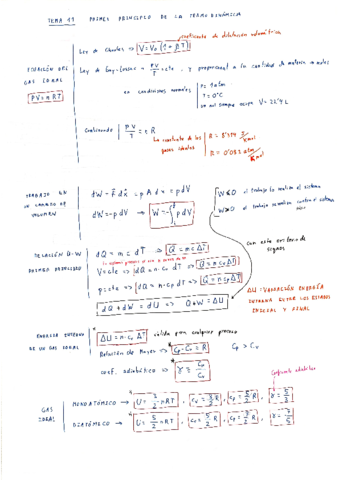 TEMA 11 PRIMER PRINCIPIO DE LA TERMODINÁMICA
coeficiente de dilatación volumétrica
Ley de Charles => V = V₀ (1 + βT)
ECUACIÓN DEL GAS IDEAL
PV = nRT
Ley de Gay-Lussac = PV/T = cte, y proporcional a la cantidad de materia n moles
en condiciones normales
P = 1 atm
T = 0°C
un mol siempre ocupa V = 22'4 L
Combinando PV/T = nR
La constante de los gases ideales
R = 8'314 J/Kmol
R = 0'082 atm
TRABAJO EN UN CAMBIO DE VOLUMEN
dW = F dx = pA dx = p dV
dW = -p dV => W = -∫ p dV
W<0 el trabajo lo realiza el sistema
W>0 el trabajo
con este criterio de signos
RELACIÓN Q-W
PRIMER PRINCIPIO
dQ = m c dT => Q = m c ΔT
V = cte => dQ = n cv dT => Q = n cv ΔT
p = cte => dQ = n cp dT => Q = n cp ΔT
dQ + dW = dU => Q + W = ΔU
ΔU: VARIACIÓN ENERGÍA INTERNA ENTRE LOS ESTADOS INICIAL Y FINAL
ENERGÍA INTERNA DE UN GAS IDEAL
ΔU = n cv ΔT válida para cualquier proceso
Relación de Mayer => Cp - Cv = R Cp > Cv
coef. adiabático => γ = Cp/Cv
Coeficiente adiabático
GAS IDEAL
MONOATÓMICO → U = 3/2 nRT, Cv = 3/2 R, Cp = 5/2 R, γ = 5/3
DIATÓMICO → U = 5/2 nRT, Cv = 5/2 R, Cp = 7/2 R, γ = 7/5